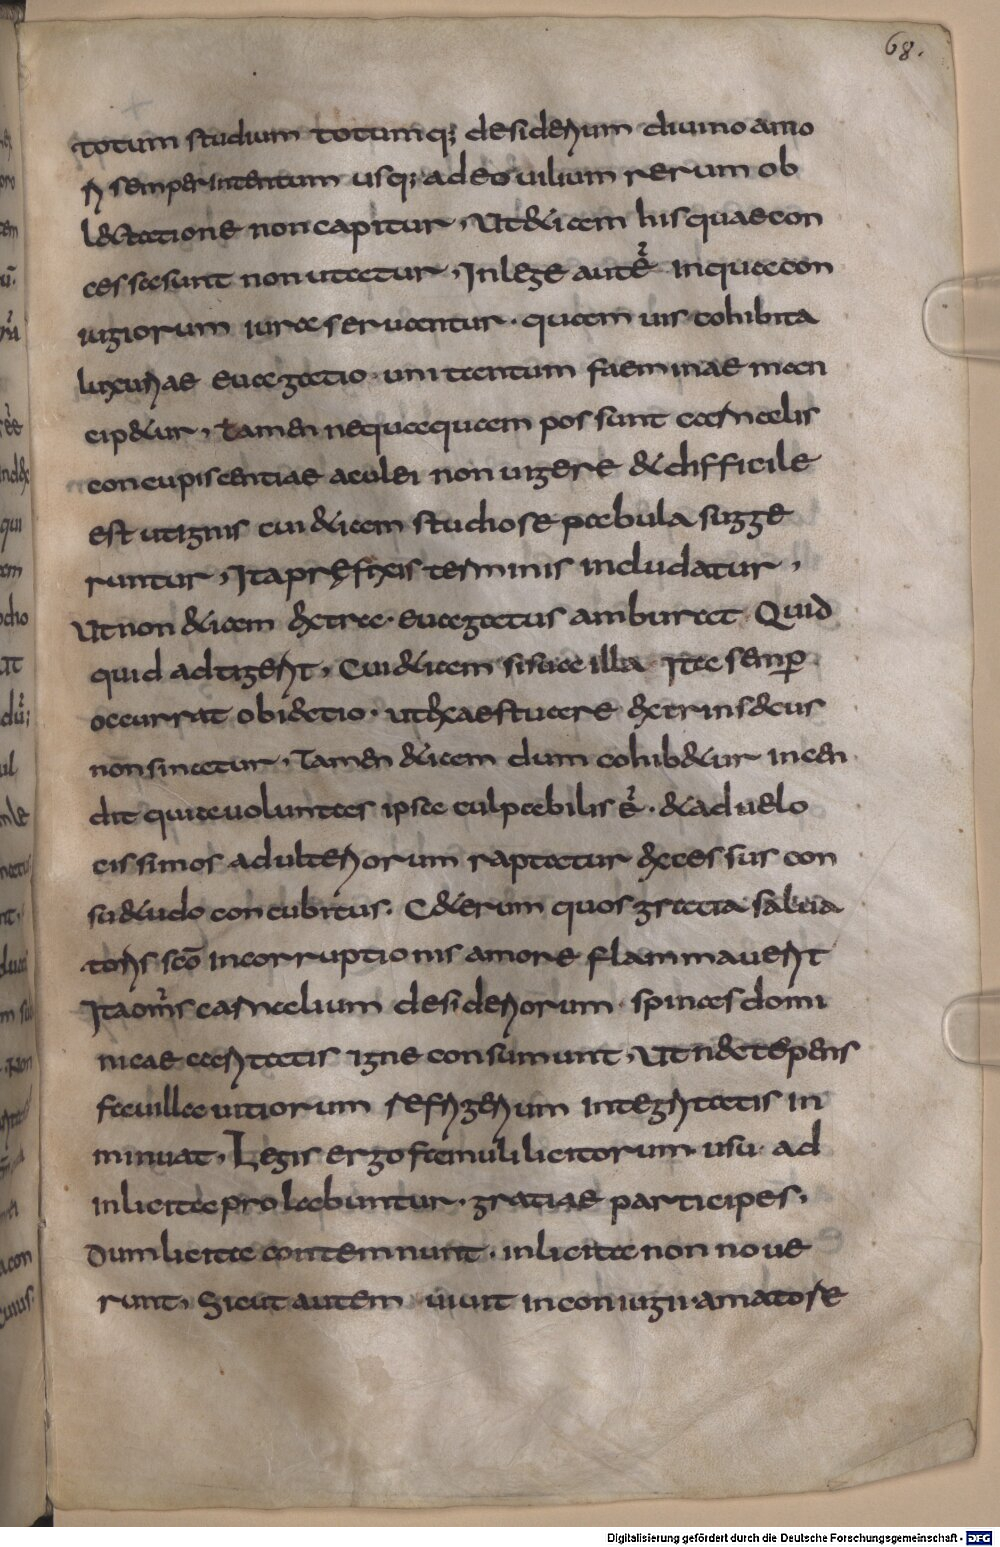 68.
totum studium totumq; desiderium diuino amo
ri semper intentum usq; adeo uilium rerum ob
lectatione non capitur, Ut etiam his quae con
cessa sunt non utatur, In lege autē in qua con
iugiorum iura seruantur. quam uis cohibita
luxuriae euagatio uni tantum faeminae man
cipetur, tamen nequaquam possunt carnalis
concupiscentiae aculei non uigere et difficile
est ut ignis cui etiam studiose pabula sugge
runtur, Ita pręfixis terminis includatur,
Ut non etiam extra euagatus amburat Quid
quid adtigerit, Cui etiam si sua illa Ita semp
occurrat obiectio. ut exaestuare extrinsecus
non sinatur, Tamen etiam dum cohibetur incen
dit quia uoluntas ipsa culpabilis ē. et ad uelo
cissimos adulteriorum raptatur excessus con
suetudo concubitus. Ceterum quos gratia salua
toris scō incorruptionis amore flammauerit
Ita om̄s carnalium desideriorum spinas domi
nicae caritatis igne consumunt, Ut nec tepens
fauilla uitiorum refrigerium integritatis in
minuat, Legis ergo famuli licitorum usu ad
inlicita prolabuntur. gratiae participes.
Dum licita contemnunt. inlicita non noue
runt, Sicut autem uiuit in coniugii amatore
Digitalisierung gefördert durch die Deutsche Forschungsgemeinschaft - DFG